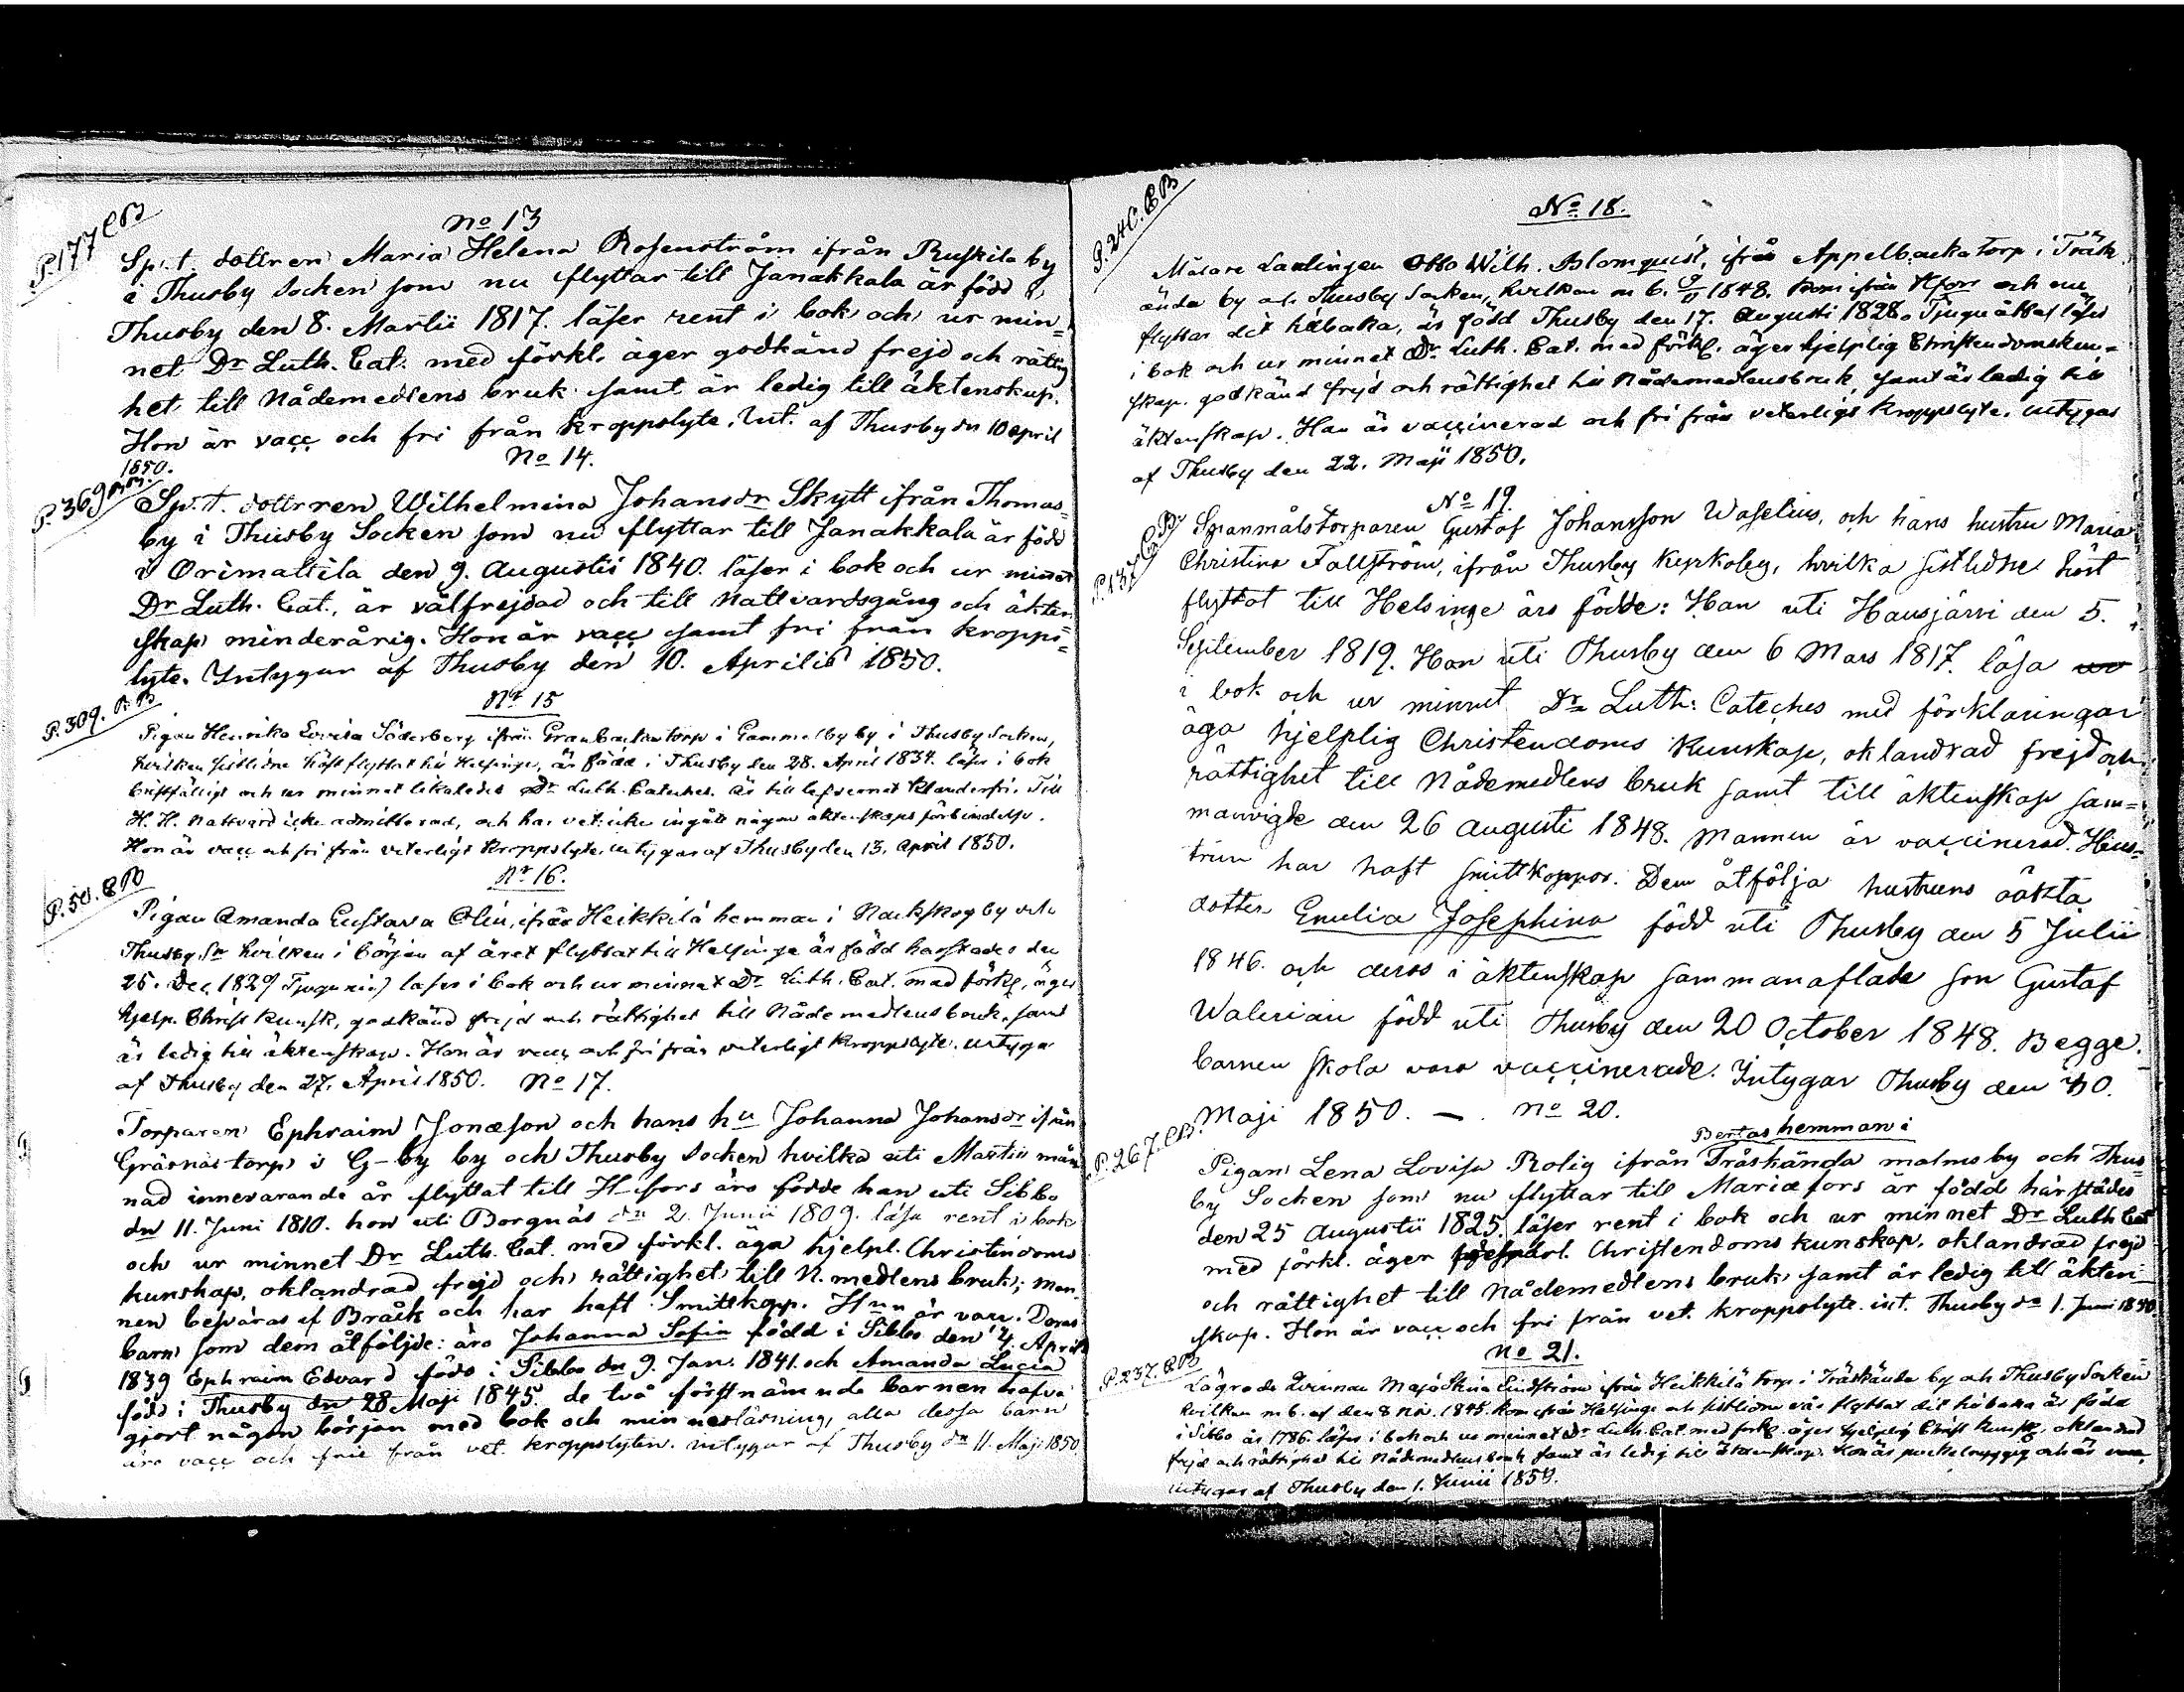 P.177 CB
No 13
Sp.t. dottren Maria Helena Rosenström ifrån Ruskila by
i Thusby Socken som nu flyttar till Janakkala är född i
Thusby den 8. Martii 1817. läser rent i bok och ur min=
net Dr Luth. Cat. med förkl. äger godkänd frejd och rättig
het till Nådemedlens bruk samt är ledig till äktenskap.
Hon är vacc och fri från kroppslyte. Int. af Thusby dn 10 april
1850.
No 14.
P.369
Sp.t. dottrren Wilhelmina Johansdr Skytt ifrån Thomas=
by i Thusby Socken som nu flyttar till Janakkala är född
i Orimattila den 9. Augustii 1840. läser i bok och ur minnet
Dr Luth. Cat., är välfrejdad och till Nattvardsgång och äkten
skap minderårig. Hon är vacc samt fri från kropps=
lyte. Intygar af Thusby den 10. Aprilis 1850.
Nr 15
P.309. BB
Pigan Henrika Lovisa Söderberg ifrån Granbackatorp i Gammelby by i Thusby Socken,
hvilken sistlidne höst flyttat till Helsinge, är född i Thusby den 28. April 1834. läser i bok
och ur minnet likaledes Dr Luth. Cateches. Är till lefvernet klanderfri. Till
H. H. Nattvard icke admitterad, och har vet. icke ingått någon äktenskaps förbindelse.
Hon är vacc och fri från veterligt kroppslyte. intygar af Thusby den 13. April 1850.
Nr 16.
P.50. CB
Pigan Amanda Gustava Olin, ifrån Heikkilä hemman i Nackskog by och
Thusby Sn hvilken i början af året flyttat till Helsinge är född härstädes den
25. Dec 1829 Tjugunio) läser i bok och ur minnet Dr Luth. Cat. med förkl, äger
hjelp. Christ kunsk, godkänd frejd och rättighet till Nådemedlens bruk, samt
är ledig till äktenskap. Hon är vacc och fri från veterligt kroppslyte. intyga
af Thusby den 27. April 1850. No 17.
Torparen Ephraim Jonasson och hans hu Johanna Johansdr ifrån
Gräsnäs torp i G-by by och Thusby Socken hvilka uti Martii må
nad innevarande år flyttat till H-fors äro födde han uti Sibbo
dn 11. Juni 1810. hon uti Borgnäs dn 2. Junii 1809. läsa rent i bok
och ur minnet Dr Luth. Cat. med förkl. äga hjelpl. Christindoms
kunskap, oklandrad frejd och rättighet till N. medlens bruk; man
nen besväras af Bråck och har haft Smittkopp. Hnn är vacc. Deras
barn som dem åtföljde: äro Johanna Sofia född i Sibbo den 4. April
1839 Ephraim Edvard född i Sibbo dn 9. Jan. 1841. och Amanda Lucia
född i Thusby dn 28 Maji 1845. de två förstnämnde barnen hafva
gjort någon början med bok och minnesläsning, alla dessa barn
äro vacc och frie från vet. kroppslyten. intygar af Thusby dn 11. Maji 1850
P.240. CB
No 18.
Målare Lärlingen Otto Wilh. Blomquist, ifrån Appelbacka torp i Träsk
ända by och Thusby Socken, hvilken m b. 1848. kom ifrån Hfors och nu
flyttar dit tillbaka, är född Thusby den 17. Augusti 1828. Tjuguåtta) läser
i bok och ur minnet Dr Luth. Cat. med förkl. äger hjelplig Christendomskun=
skap. godkänd frejd och rättighet till Nådemedlens bruk, samt är ledig till
äktenskap. Han är vaccinerad och fri från veterligt kroppslyte. intygas
af Thusby den 22. Maji 1850.
No 19.
P.137 CB
Spanmålstorparen Gustaf Johansson Waselius, och hans hustru Maria
Christina Fallström, ifrån Thusby kyrkoby, hvilka sistlidne höst
flyttat till Helsinge äro födde: Han uti Hausjärvi den 5.
September 1819. Hon uti Thusby den 6 Mars 1817. läsa
i bok och ur minnet Dr Luth: Cateches med förklaringar
äga hjelplig Christendoms kunskap, oklandrad frejd och
rättighet till Nådemedlens bruk samt till äktenskap sam=
manvigde den 26 Augusti 1848. Mannen är vaccinerad. Hus=
trun har haft smittkoppor. Dem åtfölja hustruns oäkta
dotter Emelia Josephina född uti Thusby den 5 Julii
1846. och deras i äktenskap sammanaflade son Gustaf
Walerian född uti Thusby den 20 October 1848. Begge
barnen skola vara vaccinerade. Intygar Thusby den 30.
Maji 1850. — No 20.
P.267. CB.
Bertas hemman i
Pigan Lena Lovisa Rolig ifrån Träskända malmsby och Thus
by Socken som nu flyttar till Mariæfors är född härstädes
den 25 Augustii 1825. läser rent i bok och ur minnet Dr Luth Cat
med förkl. äger Christendoms kunskap, oklandrad frejd
och rättighet till Nådemedlens bruk samt är ledig till äkten
skap. Hon är vacc och fri från vet. kroppslyte. int. Thusby dn 1. Juni 1850
No 21.
P.237. CB
Lägrade Qvinnan Maja Stina Lindström ifrån Heikkilä torp i Träskända by och Thusby Socken
hvilken m b. af den 8 Nov. 1845. kom ifrån Helsinge och sistlidne vår flyttat dit tillbaka är född
i Sibbo år 1786. läser i bok och ur minnet Dr Luth. Cat med förkl. äger hjelplig Christ kunsk. oklandrad
frejd och rättighet till Nådemedlens bruk samt är ledig till äktenskap. Hon är och är
intygar af Thusby den 1. Junii 1850.